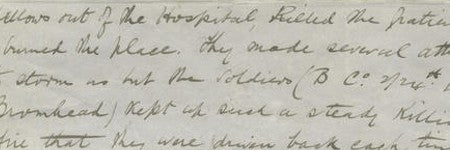 fellows out of the Hospital, killed the patien
burned the place. They made several att
storm us but the Soldiers (B Co. 2/24th
Bromhead) kept up such a steady killi
fire that they were driven back each tim